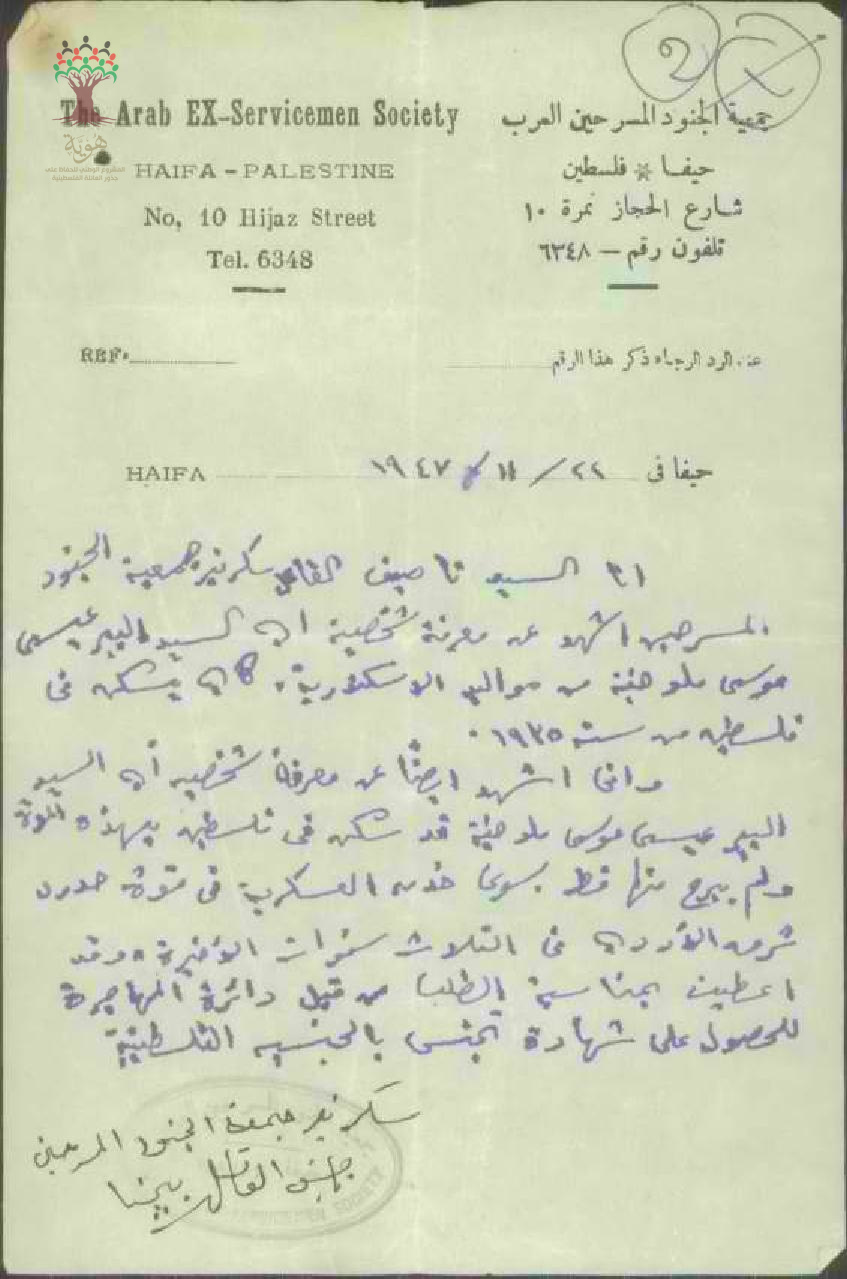 2
The Arab EX-Servicemen Society
HAIFA - PALESTINE
No, 10 Hijaz Street
Tel. 6348
جمعية الجنود المسرحين العرب
حيفا * فلسطين
شارع الحجاز نمرة ١٠
تلفون رقم — ٦٣٤٨
هوية
المشروع الوطني للحفاظ على
جذور العائلة الفلسطينية
REF.
عند الرد الرجاء ذكر هذا الرقم
HAIFA
حيفا في ٢٢ / ١١ / ١٩٤٧
السيد ناصيف سكرتير جمعية الجنود
المسرحين اشهد عن معرفة شخصية ان السيد البير عيسى
موسى من مواليد الاسكندرية. كان يسكن في
فلسطين من سنة ١٩٣٥.
وانا اشهد ايضًا عن معرفة شخصيه أن السيد
البير عيسى موسى قد سكن في فلسطين بهذه المدة
ولم يبرح منها قط سوى خدمة العسكرية في قوة حدود
شرق الأردن في الثلاث سنوات الأخيرة. وقد
اعطيت بمناسبة الطلب من قبل دائرة المهاجرة
للحصول على شهادة تجنس بالجنسيه الفلسطينية
سكرتير جمعية الجنود المسرحين
SOCIETY